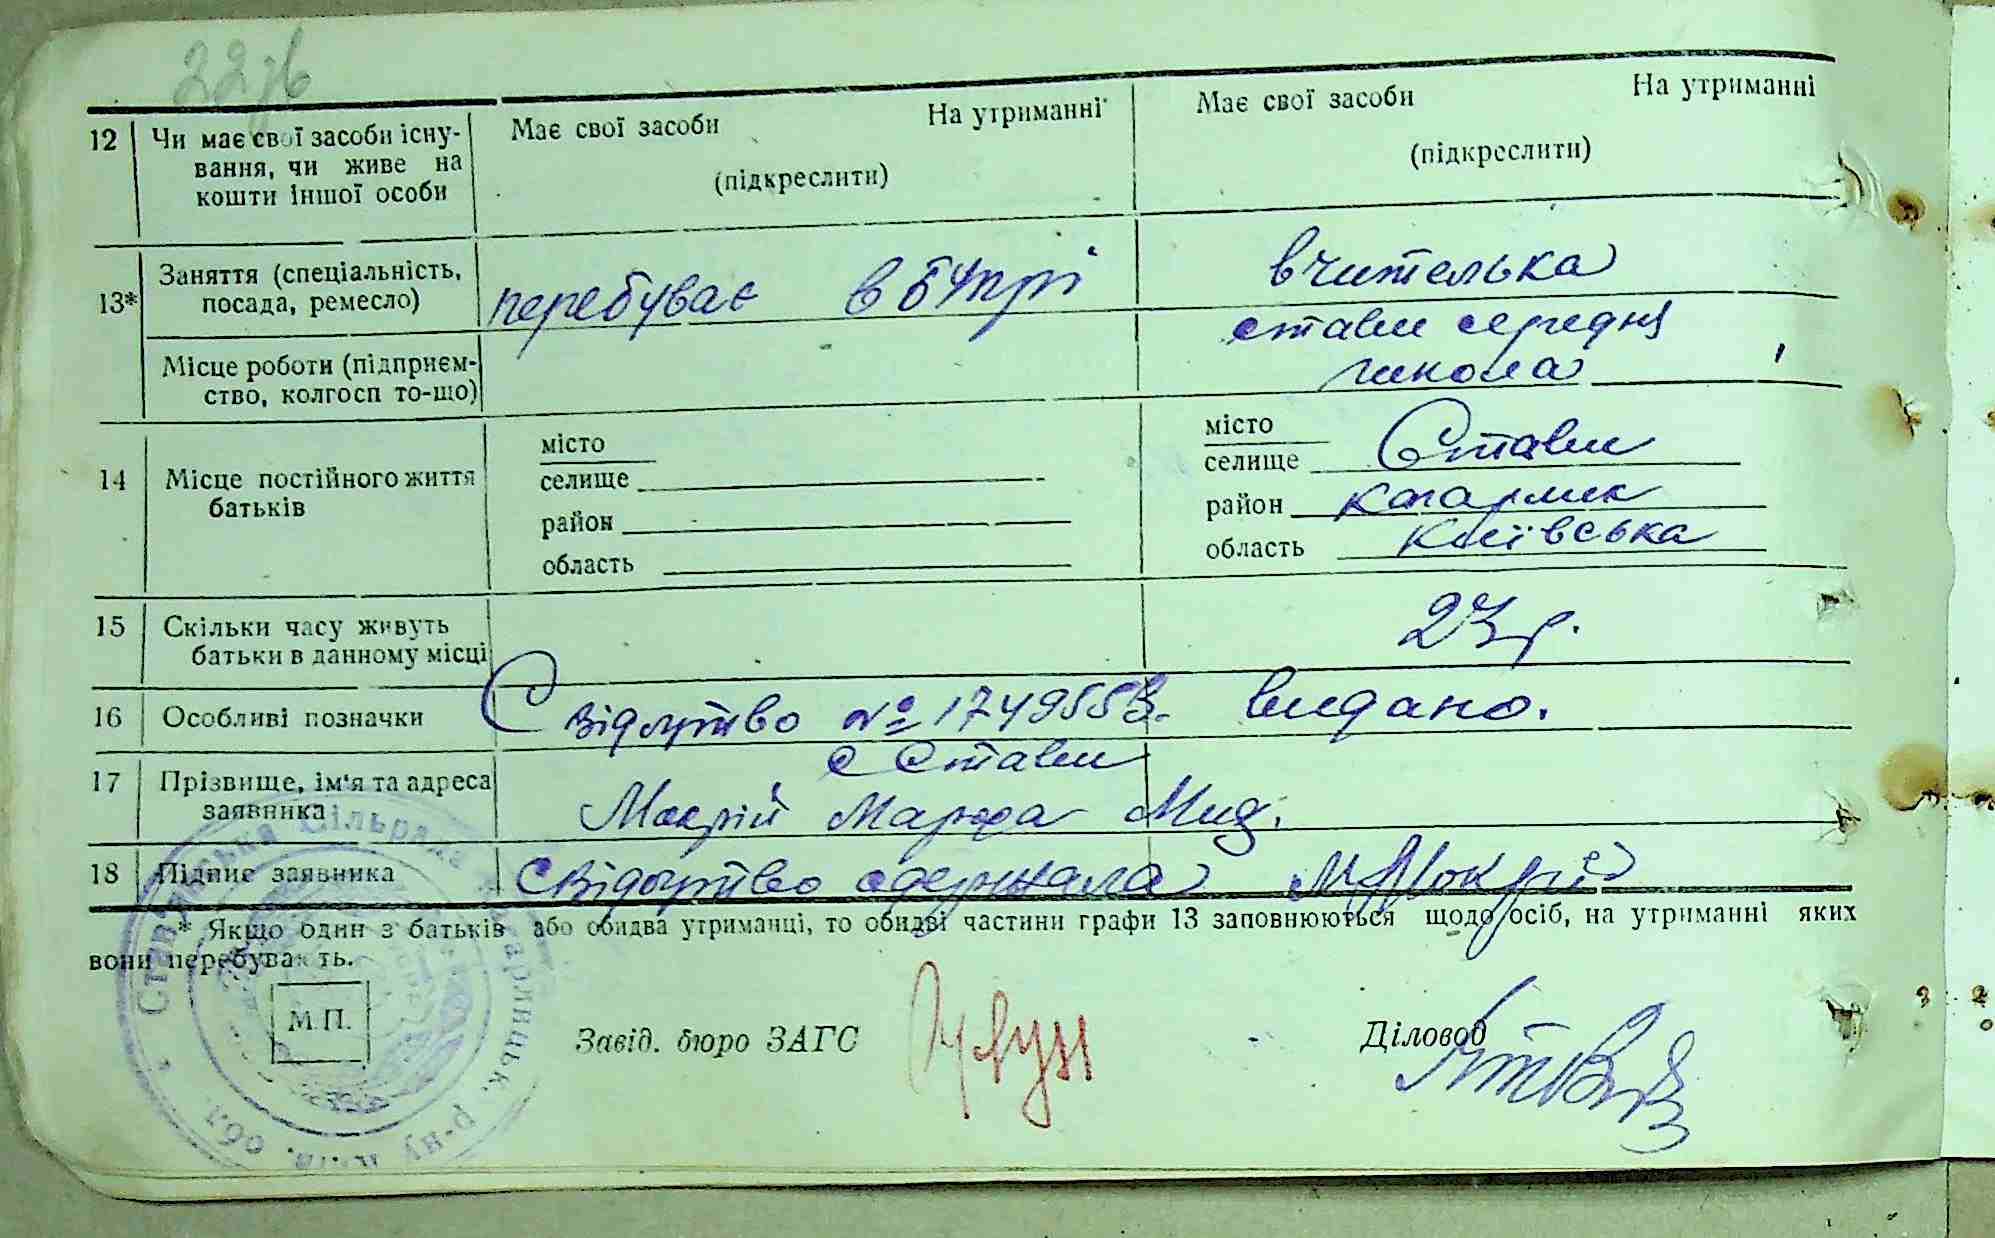 22зв
12 Чи має свої засоби існу- Має свої засоби На утриманні Має свої засоби На утриманні
вання, чи живе на (підкреслити) (підкреслити)
кошти іншої особи
13* Заняття (спеціальність, перебуває в бупрі вчителька
посада, ремесло)
Місце роботи (підприєм- стави середня
ство, колгосп то-що) школа
14 Місце постійного життя місто місто
батьків селище селище Стави
район район Кагарлик
область область Київська
15 Скільки часу живуть 23 р.
батьки в данному місці
16 Особливі позначки Свідоцтво № 1749553. видано.
17 Прізвище, ім'я та адреса с Стави
заявника Мокрій Марфа Мид.
18 Підпис заявника Свідоцтво одержала М Мокрій
* Якщо один з батьків або обидва утриманці, то обидві частини графи 13 заповнюються щодо осіб, на утриманні яких
вони перебувають.
М.П. Завід. бюро ЗАГС Діловод
Сільрада
р-ну Київ. обл.